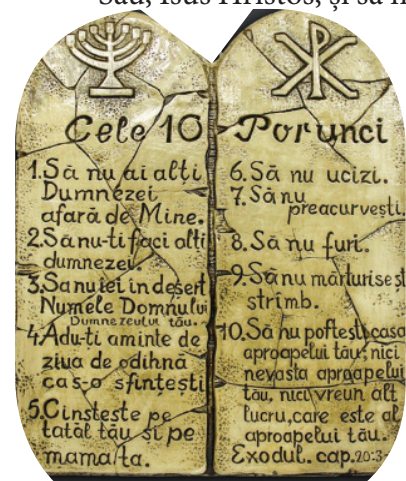 Său, Isus Hristos, și să
Cele 10 Porunci
1.Să nu ai alți
Dumnezei
afară de Mine.
2.Sanu-ti faci alți
dumnezei.
3.Sanuiei in desert
Numele Domnului
Dumnezeului tău.
4.Adu-ti aminte de
ziua de odihnă
ca s-o sfințești
5.Cinsteste pe
tatăl tău și pe
mama ta.
6.Să nu ucizi.
7.Să nu
preacurvești.
8.Să nu furi.
9.Să nu mărturisești
strîmb.
10.Să nu poftești casa
aproapelui tău, nici
nevasta aproapelui
tău, nici vreun alt
lucru,care este al
aproapelui tău.
Exodul. cap.20:3-